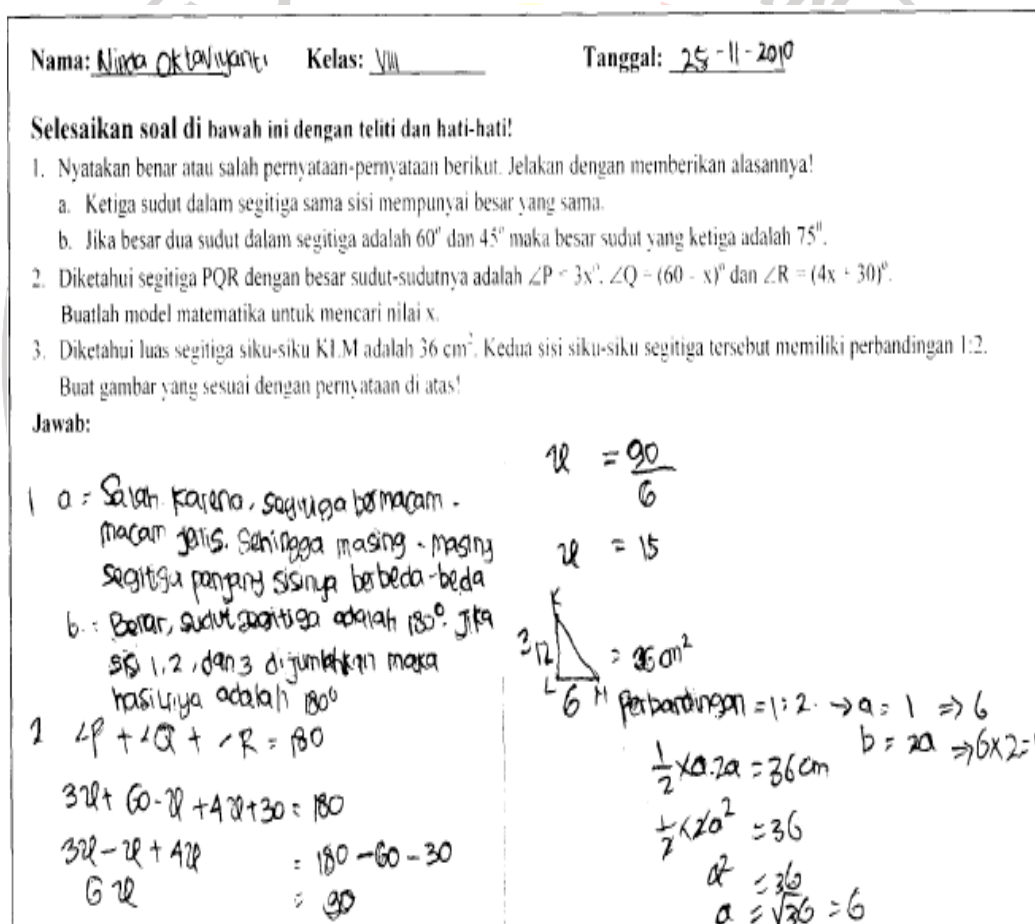 Nama: Ninda Oktaviyanti Kelas: VIII Tanggal: 25-11-2010
Selesaikan soal di bawah ini dengan teliti dan hati-hati!
1. Nyatakan benar atau salah pernyataan-pernyataan berikut. Jelakan dengan memberikan alasannya!
a. Ketiga sudut dalam segitiga sama sisi mempunyai besar yang sama.
b. Jika besar dua sudut dalam segitiga adalah 60° dan 45° maka besar sudut yang ketiga adalah 75°.
2. Diketahui segitiga PQR dengan besar sudut-sudutnya adalah ∠P = 3x°, ∠Q = (60 - x)° dan ∠R = (4x + 30)°.
Buatlah model matematika untuk mencari nilai x.
3. Diketahui luas segitiga siku-siku KLM adalah 36 cm². Kedua sisi siku-siku segitiga tersebut memiliki perbandingan 1:2.
Buat gambar yang sesuai dengan pernyataan di atas!
Jawab:
1 a = Salah karena, segitiga bermacam-
macam jenis. Sehingga masing-masing
segitiga panjang sisinya berbeda-beda
b. : Benar, sudut segitiga adalah 180°. Jika
sisi 1, 2, dan 3 dijumlahkan maka
hasilnya adalah 180°
2 ∠P + ∠Q + ∠R = 180
3x + 60 - x + 4x + 30 = 180
3x - x + 4x = 180 - 60 - 30
6x = 90
x = 90/6
x = 15
3 K
12 = 36 cm²
L 6 M
Perbandingan = 1:2. → a = 1 ⇒ 6
b = 2a ⇒ 6x2=
1/2 x a.2a = 36 cm
1/2 x 2a² = 36
a² = 36
a = √36 = 6